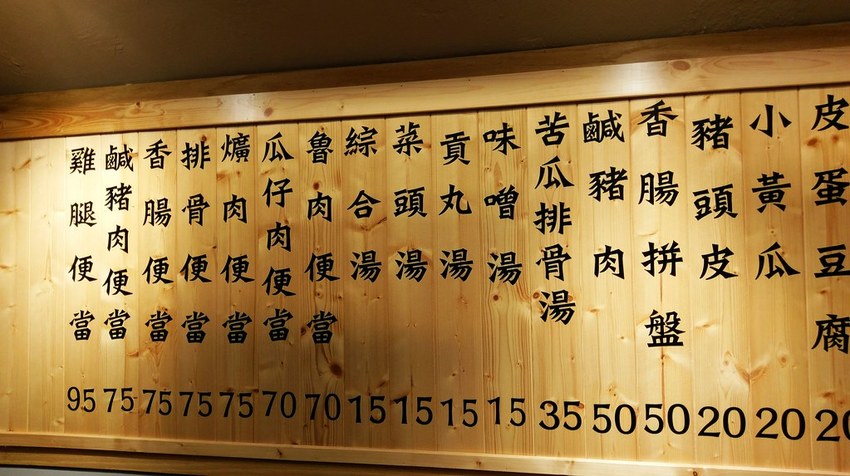 雞腿便當 95
鹹豬肉便當 75
香腸便當 75
排骨便當 75
爌肉便當 75
瓜仔肉便當 70
魯肉便當 70
綜合湯 15
菜頭湯 15
貢丸湯 15
味噌湯 15
苦瓜排骨湯 35
鹹豬肉 50
香腸拼盤 50
豬頭皮 20
小黃瓜 20
皮蛋豆腐 20